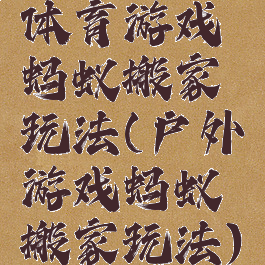 体育游戏
蚂蚁搬家
玩法(户外
游戏蚂蚁
搬家玩法)